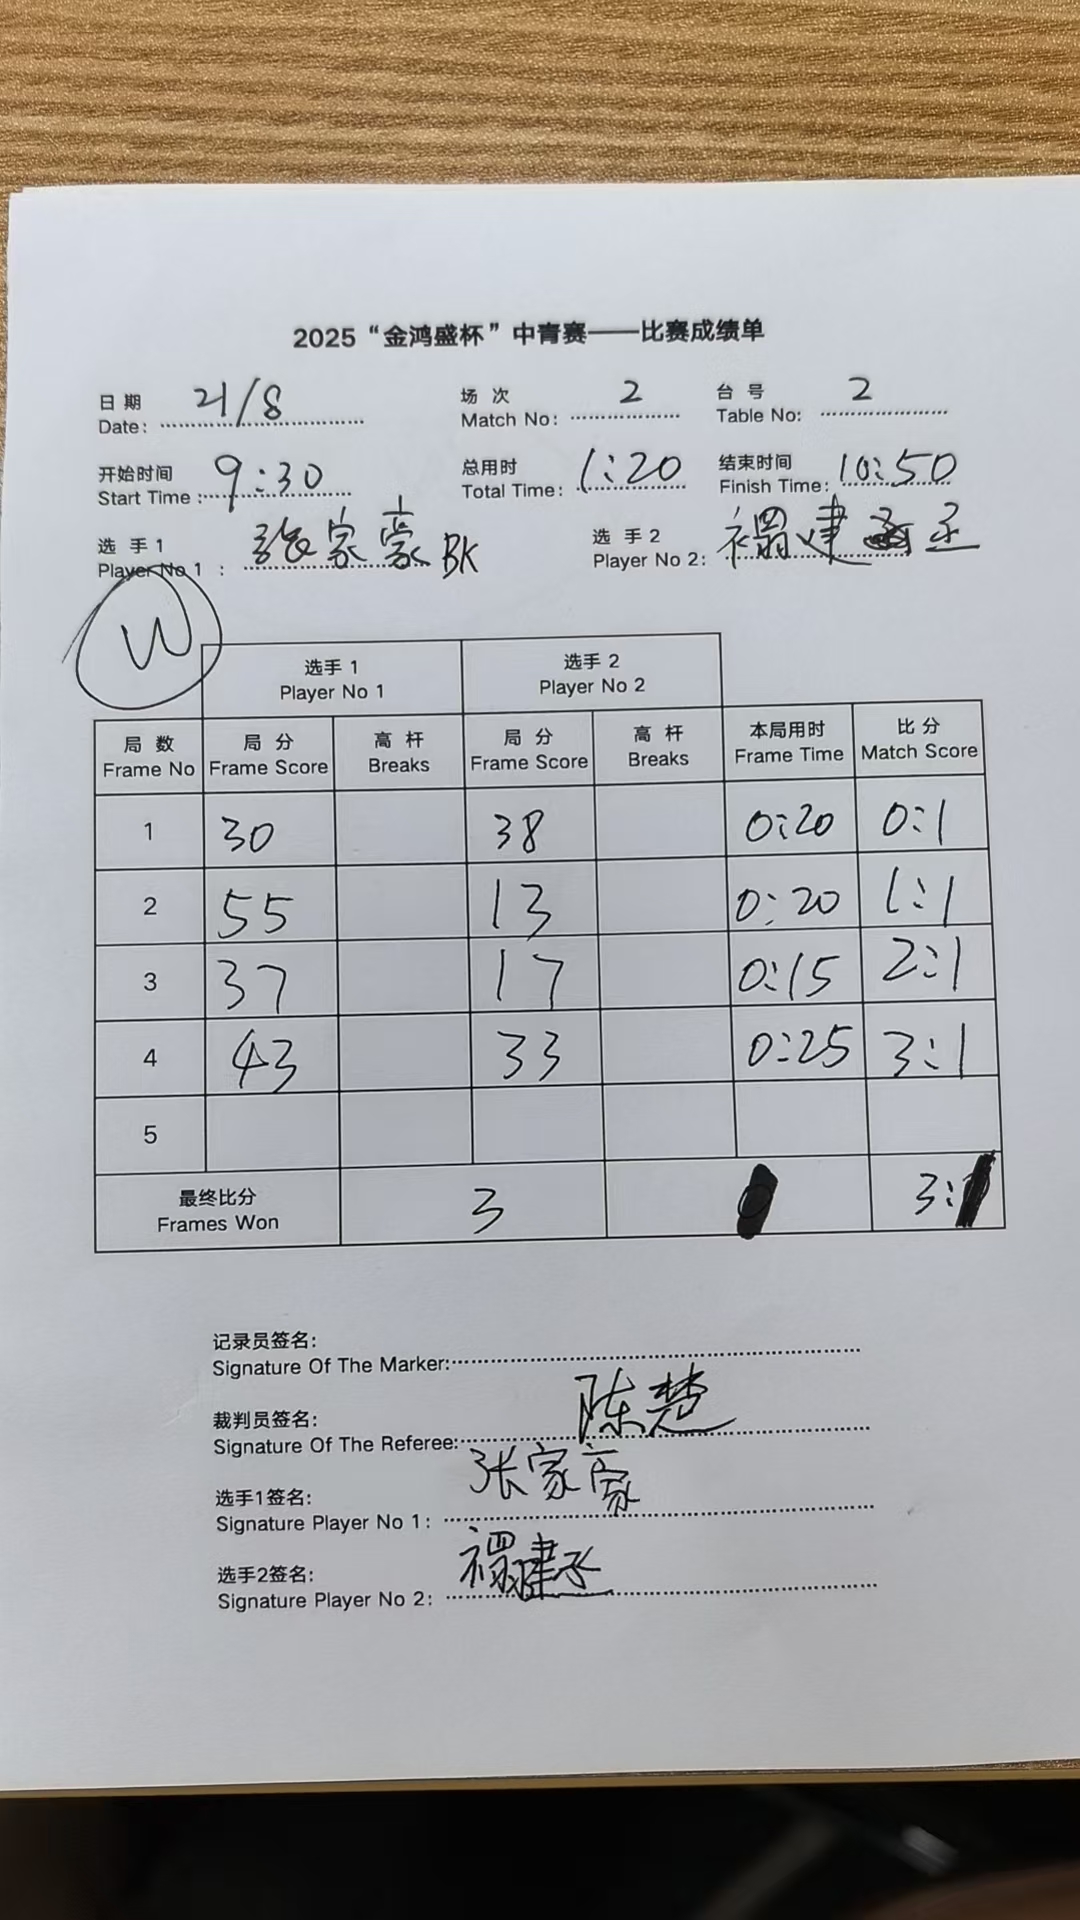 2025“金鸿盛杯”中青赛——比赛成绩单
日期 21/8 场次 2 台号 2
Date: Match No: Table No:
开始时间 9:30 总用时 1:20 结束时间 10:50
Start Time: Total Time: Finish Time:
选手1 张家豪 BK 选手2 禤建丞
Player No 1 : Player No 2:
W
选手1 选手2
Player No 1 Player No 2
局数 局分 高杆 局分 高杆 本局用时 比分
Frame No Frame Score Breaks Frame Score Breaks Frame Time Match Score
1 30 38 0:20 0:1
2 55 13 0:20 1:1
3 37 17 0:15 2:1
4 43 33 0:25 3:1
5
最终比分 3 3:
Frames Won
记录员签名:
Signature Of The Marker:
裁判员签名: 陈楚
Signature Of The Referee:
选手1签名: 张家豪
Signature Player No 1:
选手2签名: 禤建丞
Signature Player No 2: